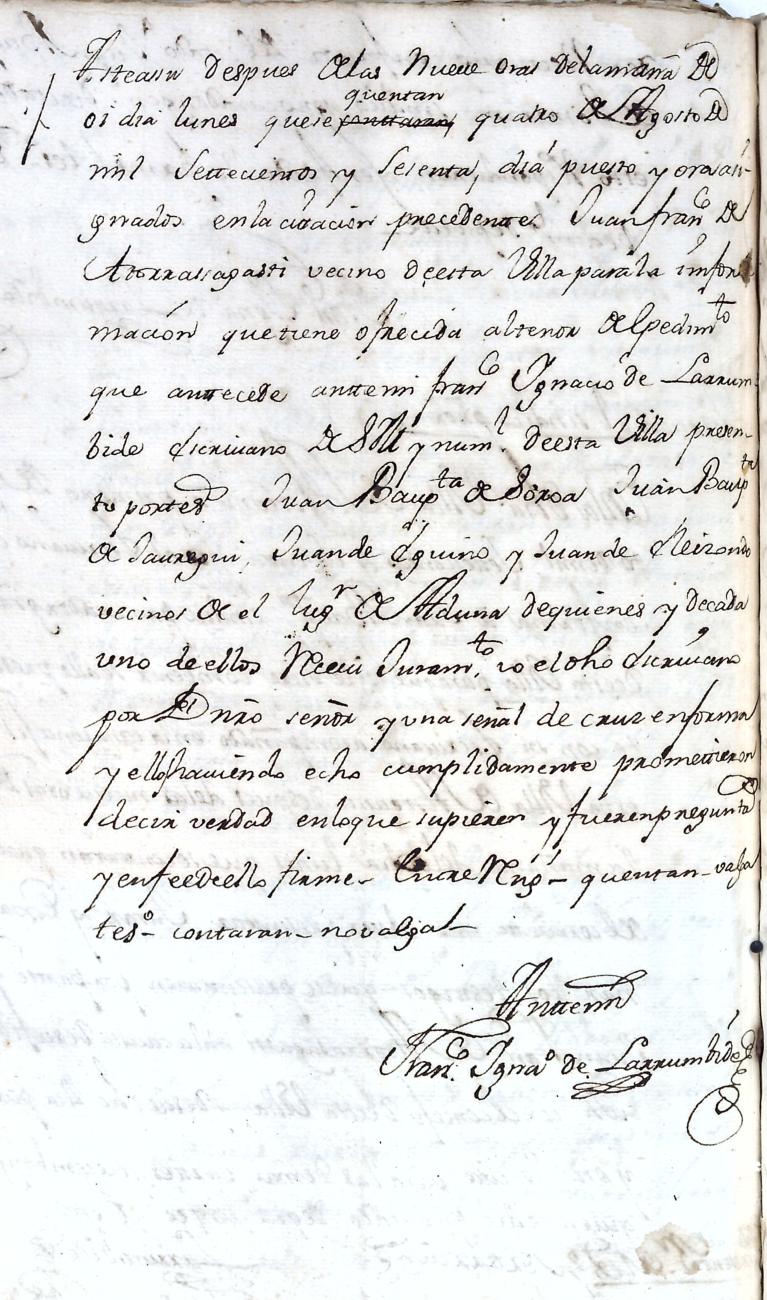 Asteasu despues de las Nueve oras delamañana de
quentan
oi dia lunes quese conttaran quatro de Agosto de
mil Settecientos y Sesenta, dia puesto y ora asi-
gnados enla citacion precedente Juan franco de
Atorrasagasti vecino deesta Villa parala infor
macion quetiene ofrecida altenor del pedimto
que anttecede anttemi franco Ignacio de Larrum-
bide Escrivano de SM ynuml deesta Villa presen-
to portesos Juan Bapta de Soroa Juan Bapta
de Jauregui, Juande Eguino y Juande Elizondo
vecinos de el lugr de Aduna dequienes y decada
uno deellos Recivi Juramto, io el dho Escrivano
por Dios nro señor yuna señal de cruz enforma
y ellos haviendo echo cumplidamente promettieron
decir verdad enloque supieren y fueren preguntados
y enfeedeello firme - entre Rngs - quentan - valga
tesdo - contaran - novalga -
Anttemi
Franco Ignao de Larrumbide